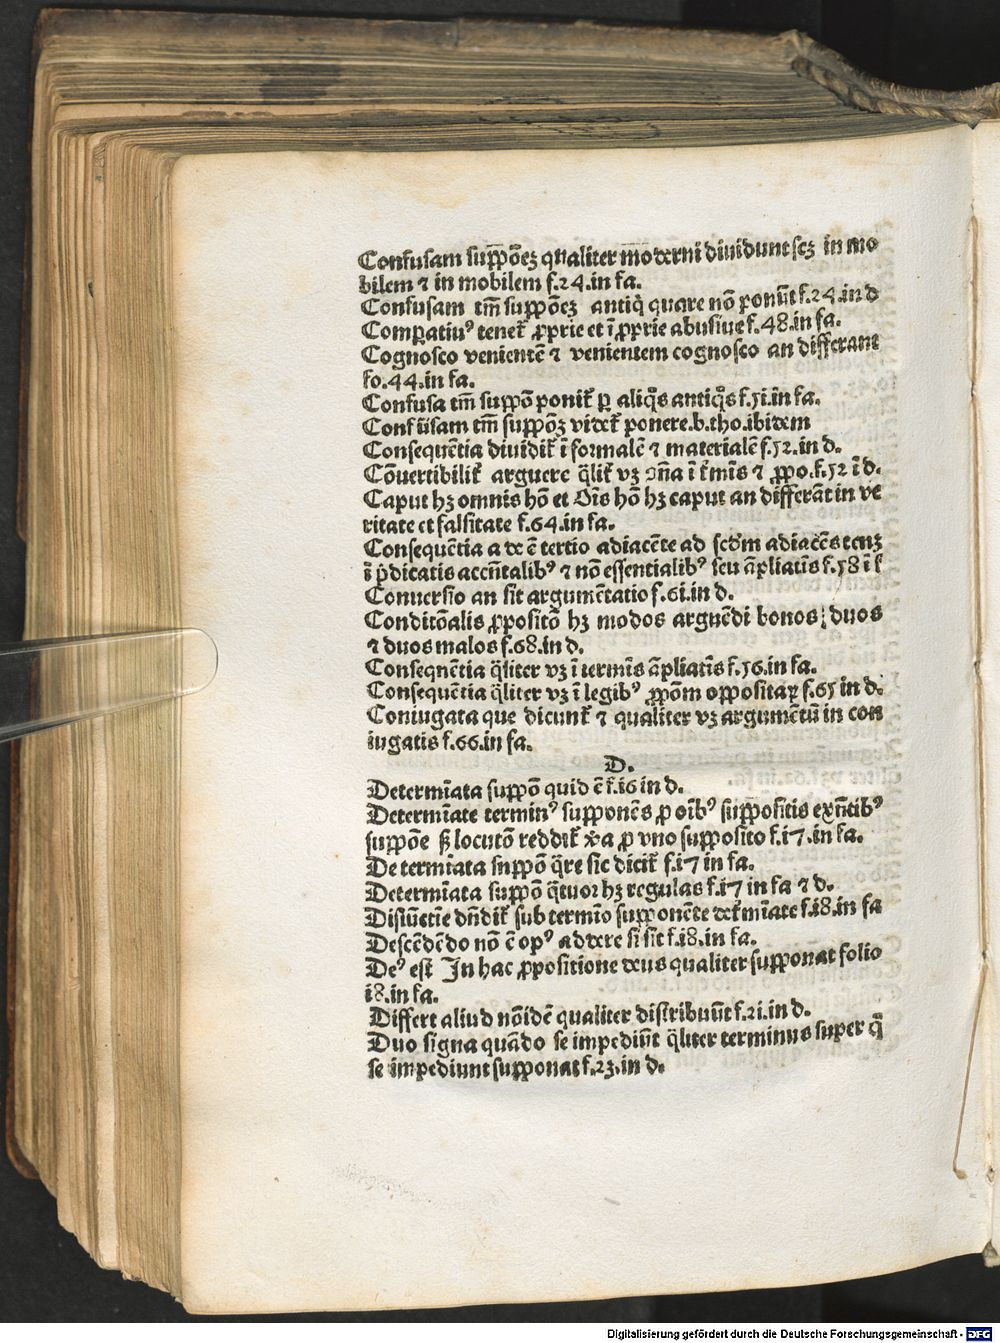 Confusam suppōeꝫ qualiter moderni diuidunt scꝫ in mo
bilem ⁊ in mobilem f.24.in fa.
Confusam tm̄ suppōeꝫ antiq̇ quare nō ponūt f.24.in d
Comꝑatiuꝰ tenet̄ ꝓprie et īꝓprie abusiue f.48.in fa.
Cognosco venientē ⁊ venientem cognosco an differant
fo.44.in fa.
Confusa tm̄ suppō ponit̄ ꝑ aliq̊s antiq̊s f.51.in fa.
Confūsam tm̄ suppōꝫ videt̄ ponere.b.tho.ibidem
Consequētia diuidit̄ ī formalē ⁊ materialē f.52.in d.
Cōuertibilit̄ arguere q̄lit̄ vꝫ ꝯn̄a ī t̄mīs ⁊ ꝓpo.f.52 ī d.
Caput hꝫ omnis hō et Oīs hō hꝫ caput an differāt in ve
ritate et falsitate f.64.in fa.
Consequētia a de ē tertio adiacēte ad scd̄m adiacēs tenꝫ
ī p̄dicatis accn̄talibꝰ ⁊ nō essentialibꝰ seu āpliatīs f.58 ī f
Conuersio an sit argumētatio f.61.in d.
Conditōalis ꝓpositō hꝫ modos arguēdi bonos duos
⁊ duos malos f.68.in d.
Conseqnētia q̄liter vꝫ ī termīs āpliatīs f.56.in fa.
Consequētia q̄liter vꝫ ī legibꝰ ꝓpōm oppositaꝝ f.65 in d.
Coniugata que dicunt̄ ⁊ qualiter vꝫ argumētū in con
iugatis f.66.in fa.
D.
Determīata suppō quid ē f.16 in d.
Determīate terminꝰ supponēs ꝓ oībꝰ suppositis exn̄tibꝰ
suppōe ꝭ locutō reddit̄ va ꝓ vno supposito f.17.in fa.
De termīata snppō q̄re sic dicit̄ f.17 in fa.
Determīata suppō q̄tuor hꝫ regulas f.17 in fa ⁊ d.
Disiūctie dn̄dit̄ sub termīo supponēte det̄mīate f.18.in fa
Descēdēdo nō ē opꝰ addere si sit f.18.in fa.
Deꝰ est In hac ꝓpositione deus qualiter supponat folio
18.in fa.
Differt aliud nōidē qualiter distribuūt f.21.in d.
Duo signa quādo se impediūt q̄liter terminus super q̄
se impediunt supponat f.23.in d.
Digitalisierung gefördert durch die Deutsche Forschungsgemeinschaft - DFG